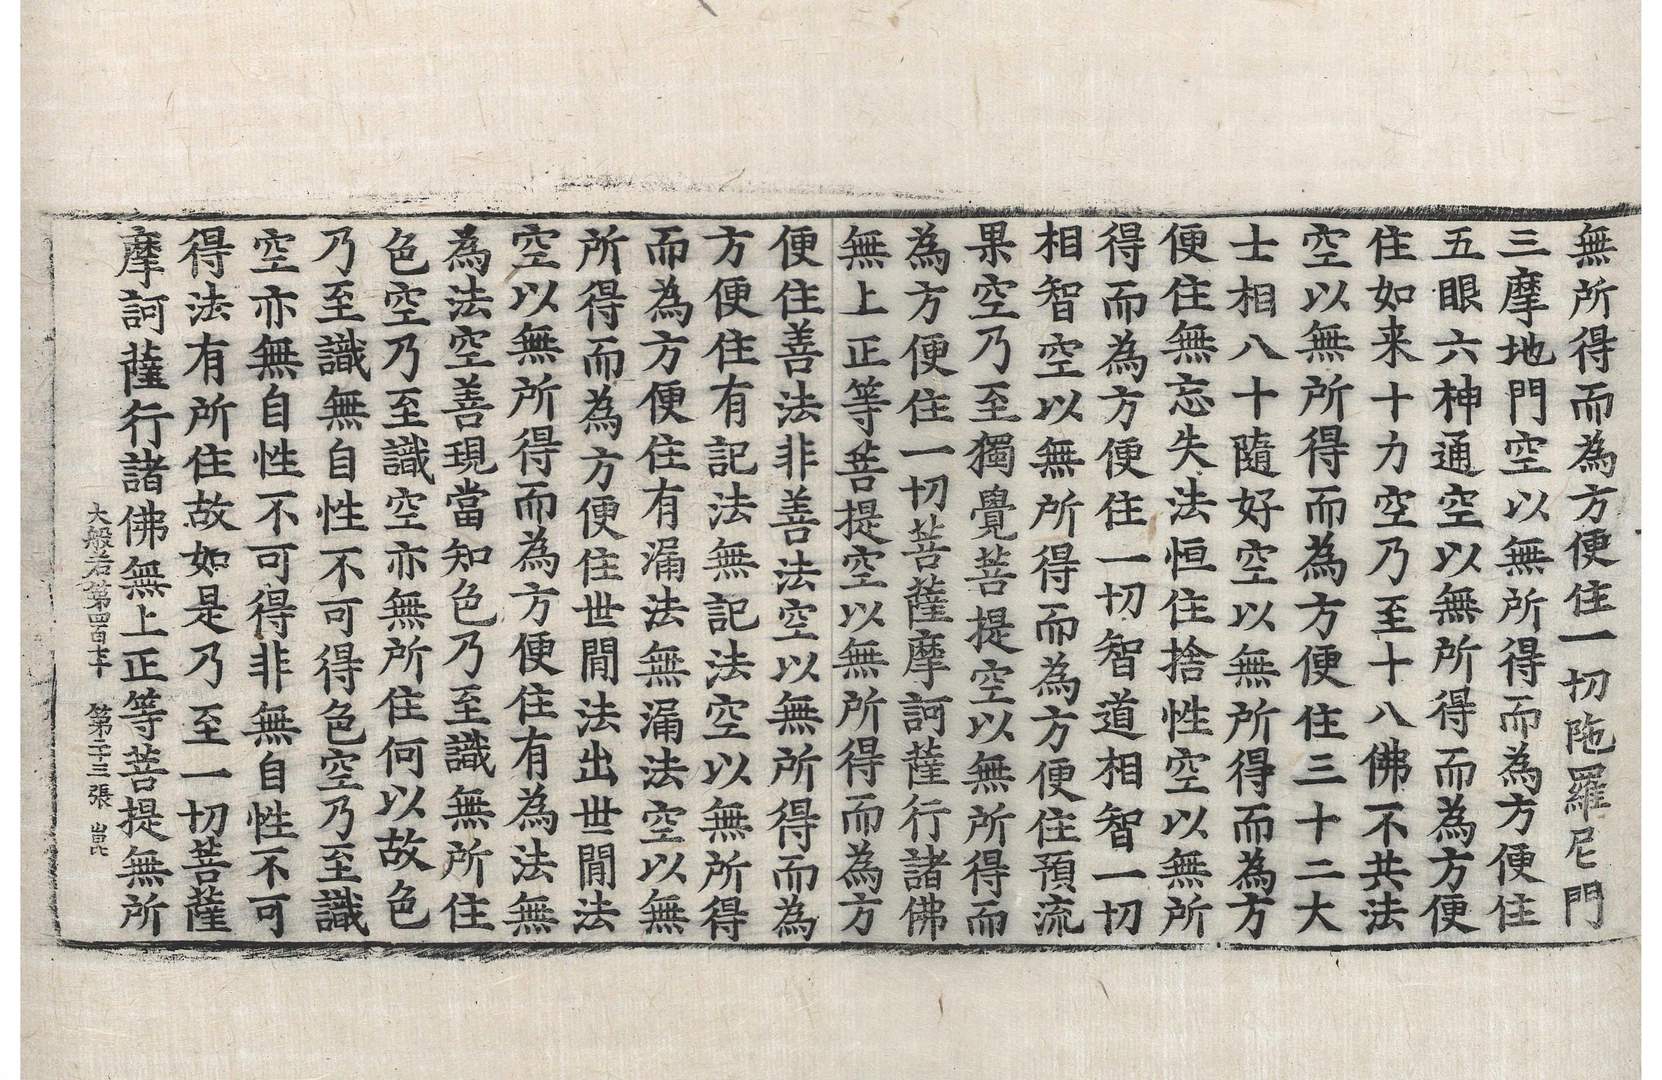 無所得而為方便住一切陁羅尼門
三摩地門空以無所得而為方便住
五眼六神通空以無所得而為方便
住如来十力空乃至十八佛不共法
空以無所得而為方便住三十二大
士相八十隨好空以無所得而為方
便住無忘失法恒住捨性空以無所
得而為方便住一切智道相智一切
相智空以無所得而為方便住預流
果空乃至獨覺菩提空以無所得而
為方便住一切菩薩摩訶薩行諸佛
無上正等菩提空以無所得而為方
便住善法非善法空以無所得而為
方便住有記法無記法空以無所得
而為方便住有漏法無漏法空以無
所得而為方便住世閒法出世閒法
空以無所得而為方便住有為法無
為法空善現當知色乃至識無所住
色空乃至識空亦無所住何以故色
乃至識無自性不可得色空乃至識
空亦無自性不可得非無自性不可
得法有所住故如是乃至一切菩薩
摩訶薩行諸佛無上正等菩提無所
大般若第四百 第二十三張 崑